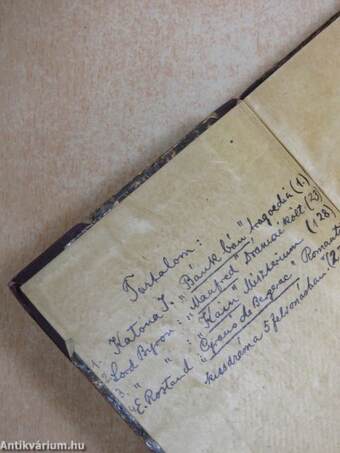 Tartalom:
1. Katona J. „Bánk bán" tragoedia (1.)
2. Lord Byron: „Manfred" Drámai költ.
3. " " : „Kain" Mistérium (128)
4. E. Rostand „Cyrano de Bergerac" Romant
kus dráma 5 felvonásban! (2
Antikvárium.hu